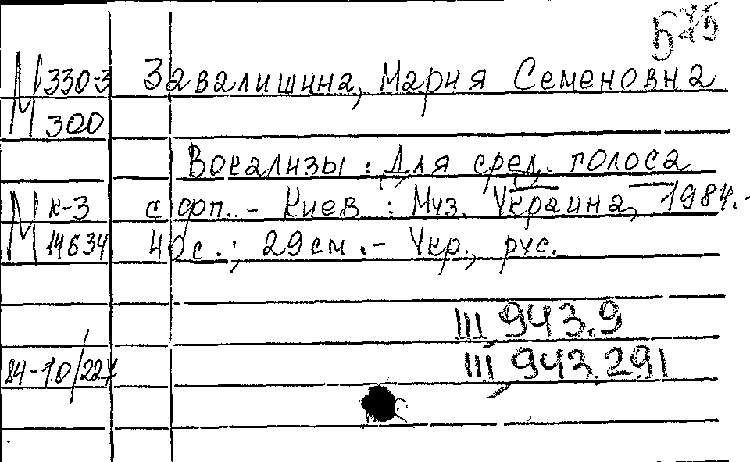 575
М 330-3 Завалишина, Мария Семеновна
300
Вокализы : Для сред. голоса
М К-3 с фп. - Киев : Муз. Украина, 1984.-
14634 40 с. ; 29 см. - Укр., рус.
Ш 943.9
84-10/221 Ш 943.291